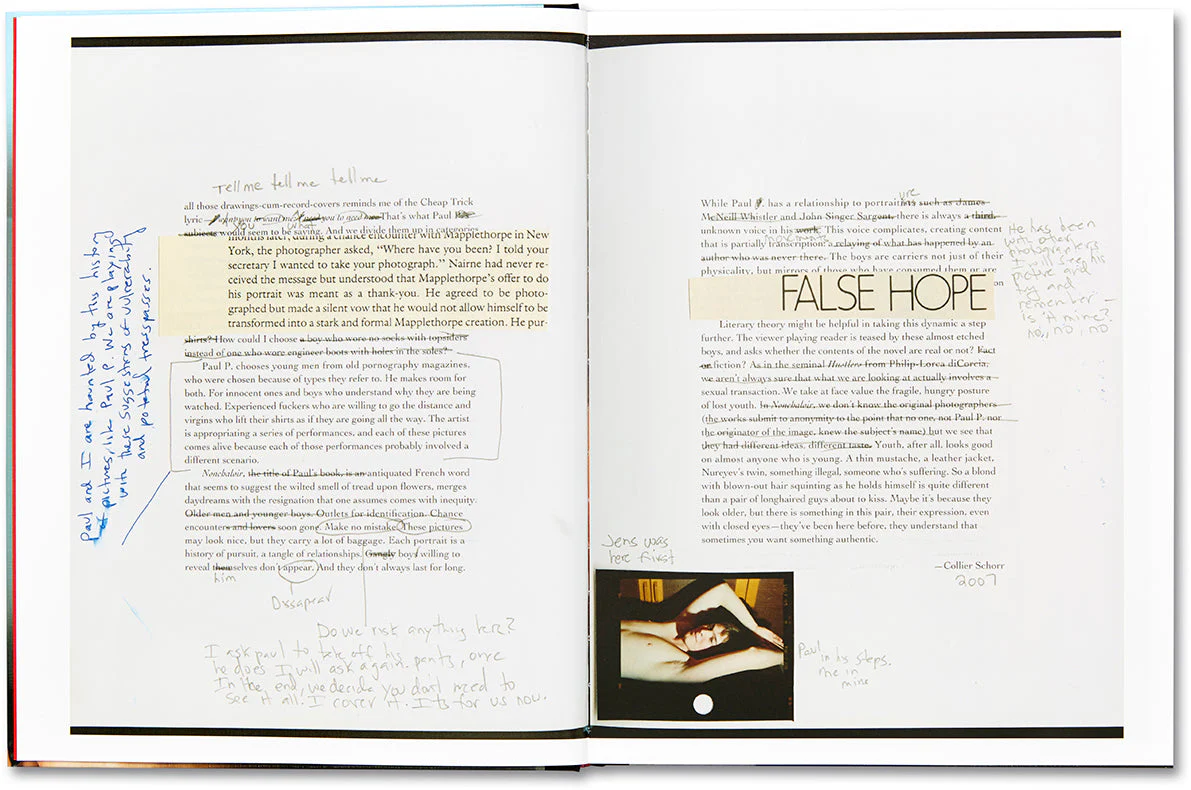 Tell me tell me tell me
all those drawings-cum-record-covers reminds me of the Cheap Trick
lyric I want you to want me, I need you to need me That's what Paul P.'s
you what
subjects would seem to be saying. And we divide them up in categories
months later, during a chance encounter with Mapplethorpe in New
York, the photographer asked, “Where have you been? I told your
secretary I wanted to take your photograph.” Nairne had never re-
ceived the message but understood that Mapplethorpe's offer to do
his portrait was meant as a thank-you. He agreed to be photo-
graphed but made a silent vow that he would not allow himself to be
transformed into a stark and formal Mapplethorpe creation. He pur-
shirts? How could I choose a boy who wore no socks with topsiders
instead of one who wore engineer boots with holes in the soles?
Paul P. chooses young men from old pornography magazines,
who were chosen because of types they refer to. He makes room for
both. For innocent ones and boys who understand why they are being
watched. Experienced fuckers who are willing to go the distance and
virgins who lift their shirts as if they are going all the way. The artist
is appropriating a series of performances, and each of these pictures
comes alive because each of those performances probably involved a
different scenario.
Nonchaloir, the title of Paul's book, is an antiquated French word
that seems to suggest the wilted smell of tread upon flowers, merges
daydreams with the resignation that one assumes comes with inequity.
Older men and younger boys. Outlets for identification. Chance
encounters and lovers soon gone. Make no mistake. These pictures
may look nice, but they carry a lot of baggage. Each portrait is a
history of pursuit, a tangle of relationships. Gangly boys willing to
reveal themselves don't appear. And they don't always last for long.
him
Dissapear
Do we risk anything here?
I ask paul to take off his pants, once
he does I will ask again.
In the end, we decide you don't need to
see it all. I cover it. Its for us now.
Paul and I are haunted by this history
of pictures, like Paul P. We are playing
with these suggestions of vulnerability
and potential tresspasses.
ure
While Paul P. has a relationship to portraitists such as James
McNeill Whistler and John Singer Sargent, there is always a third,
unknown voice in his work. This voice complicates, creating content
movement
that is partially transcription: a relaying of what has happened by an
author who was never there. The boys are carriers not just of their
physicality, but mirrors of those who have consumed them or are
on
FALSE HOPE
Literary theory might be helpful in taking this dynamic a step
further. The viewer playing reader is teased by these almost etched
boys, and asks whether the contents of the novel are real or not? Fact
or fiction? As in the seminal Hustlers from Philip-Lorca diCorcia,
we aren't always sure that what we are looking at actually involves a
sexual transaction. We take at face value the fragile, hungry posture
of lost youth. In Nonchaloir, we don't know the original photographers
(the works submit to anonymity to the point that no one, not Paul P. nor
the originator of the image, knew the subject's name) but we see that
they had different ideas, different taste. Youth, after all, looks good
on almost anyone who is young. A thin mustache, a leather jacket,
Nureyev's twin, something illegal, someone who's suffering. So a blond
with blown-out hair squinting as he holds himself is quite different
than a pair of longhaired guys about to kiss. Maybe it's because they
look older, but there is something in this pair, their expression, even
with closed eyes—they've been here before, they understand that
sometimes you want something authentic.
—Collier Schorr
2007
He has been
with other
photographers
I will see his
picture and
try and
remember –
is it mine?
no, no, no
Jens was
here first
Paul
in his steps.
me in
mine